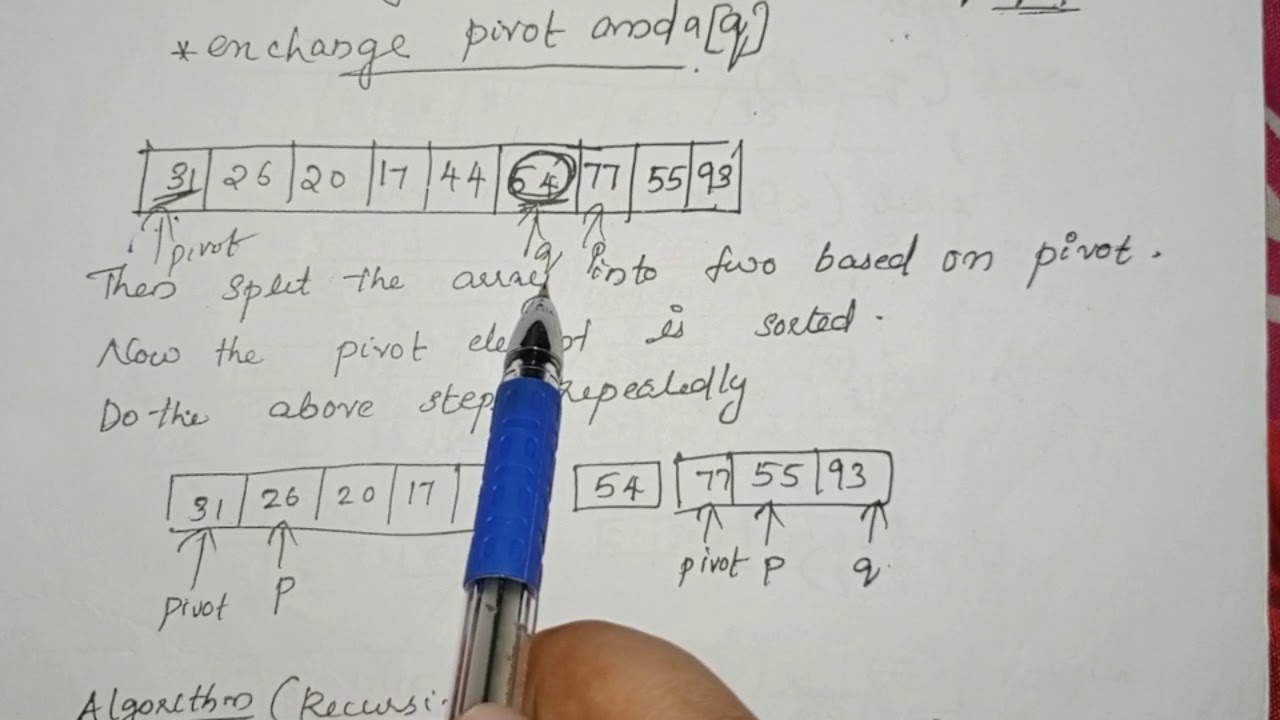 * enchange pivot and a[q]
31 26 20 17 44 54 77 55 93
pivot q p
Then split the array into two based on pivot.
Now the pivot is sorted.
Do the above steps repeatedly
31 26 20 17 54 77 55 93
pivot p pivot p q
Algorithm (Recursi